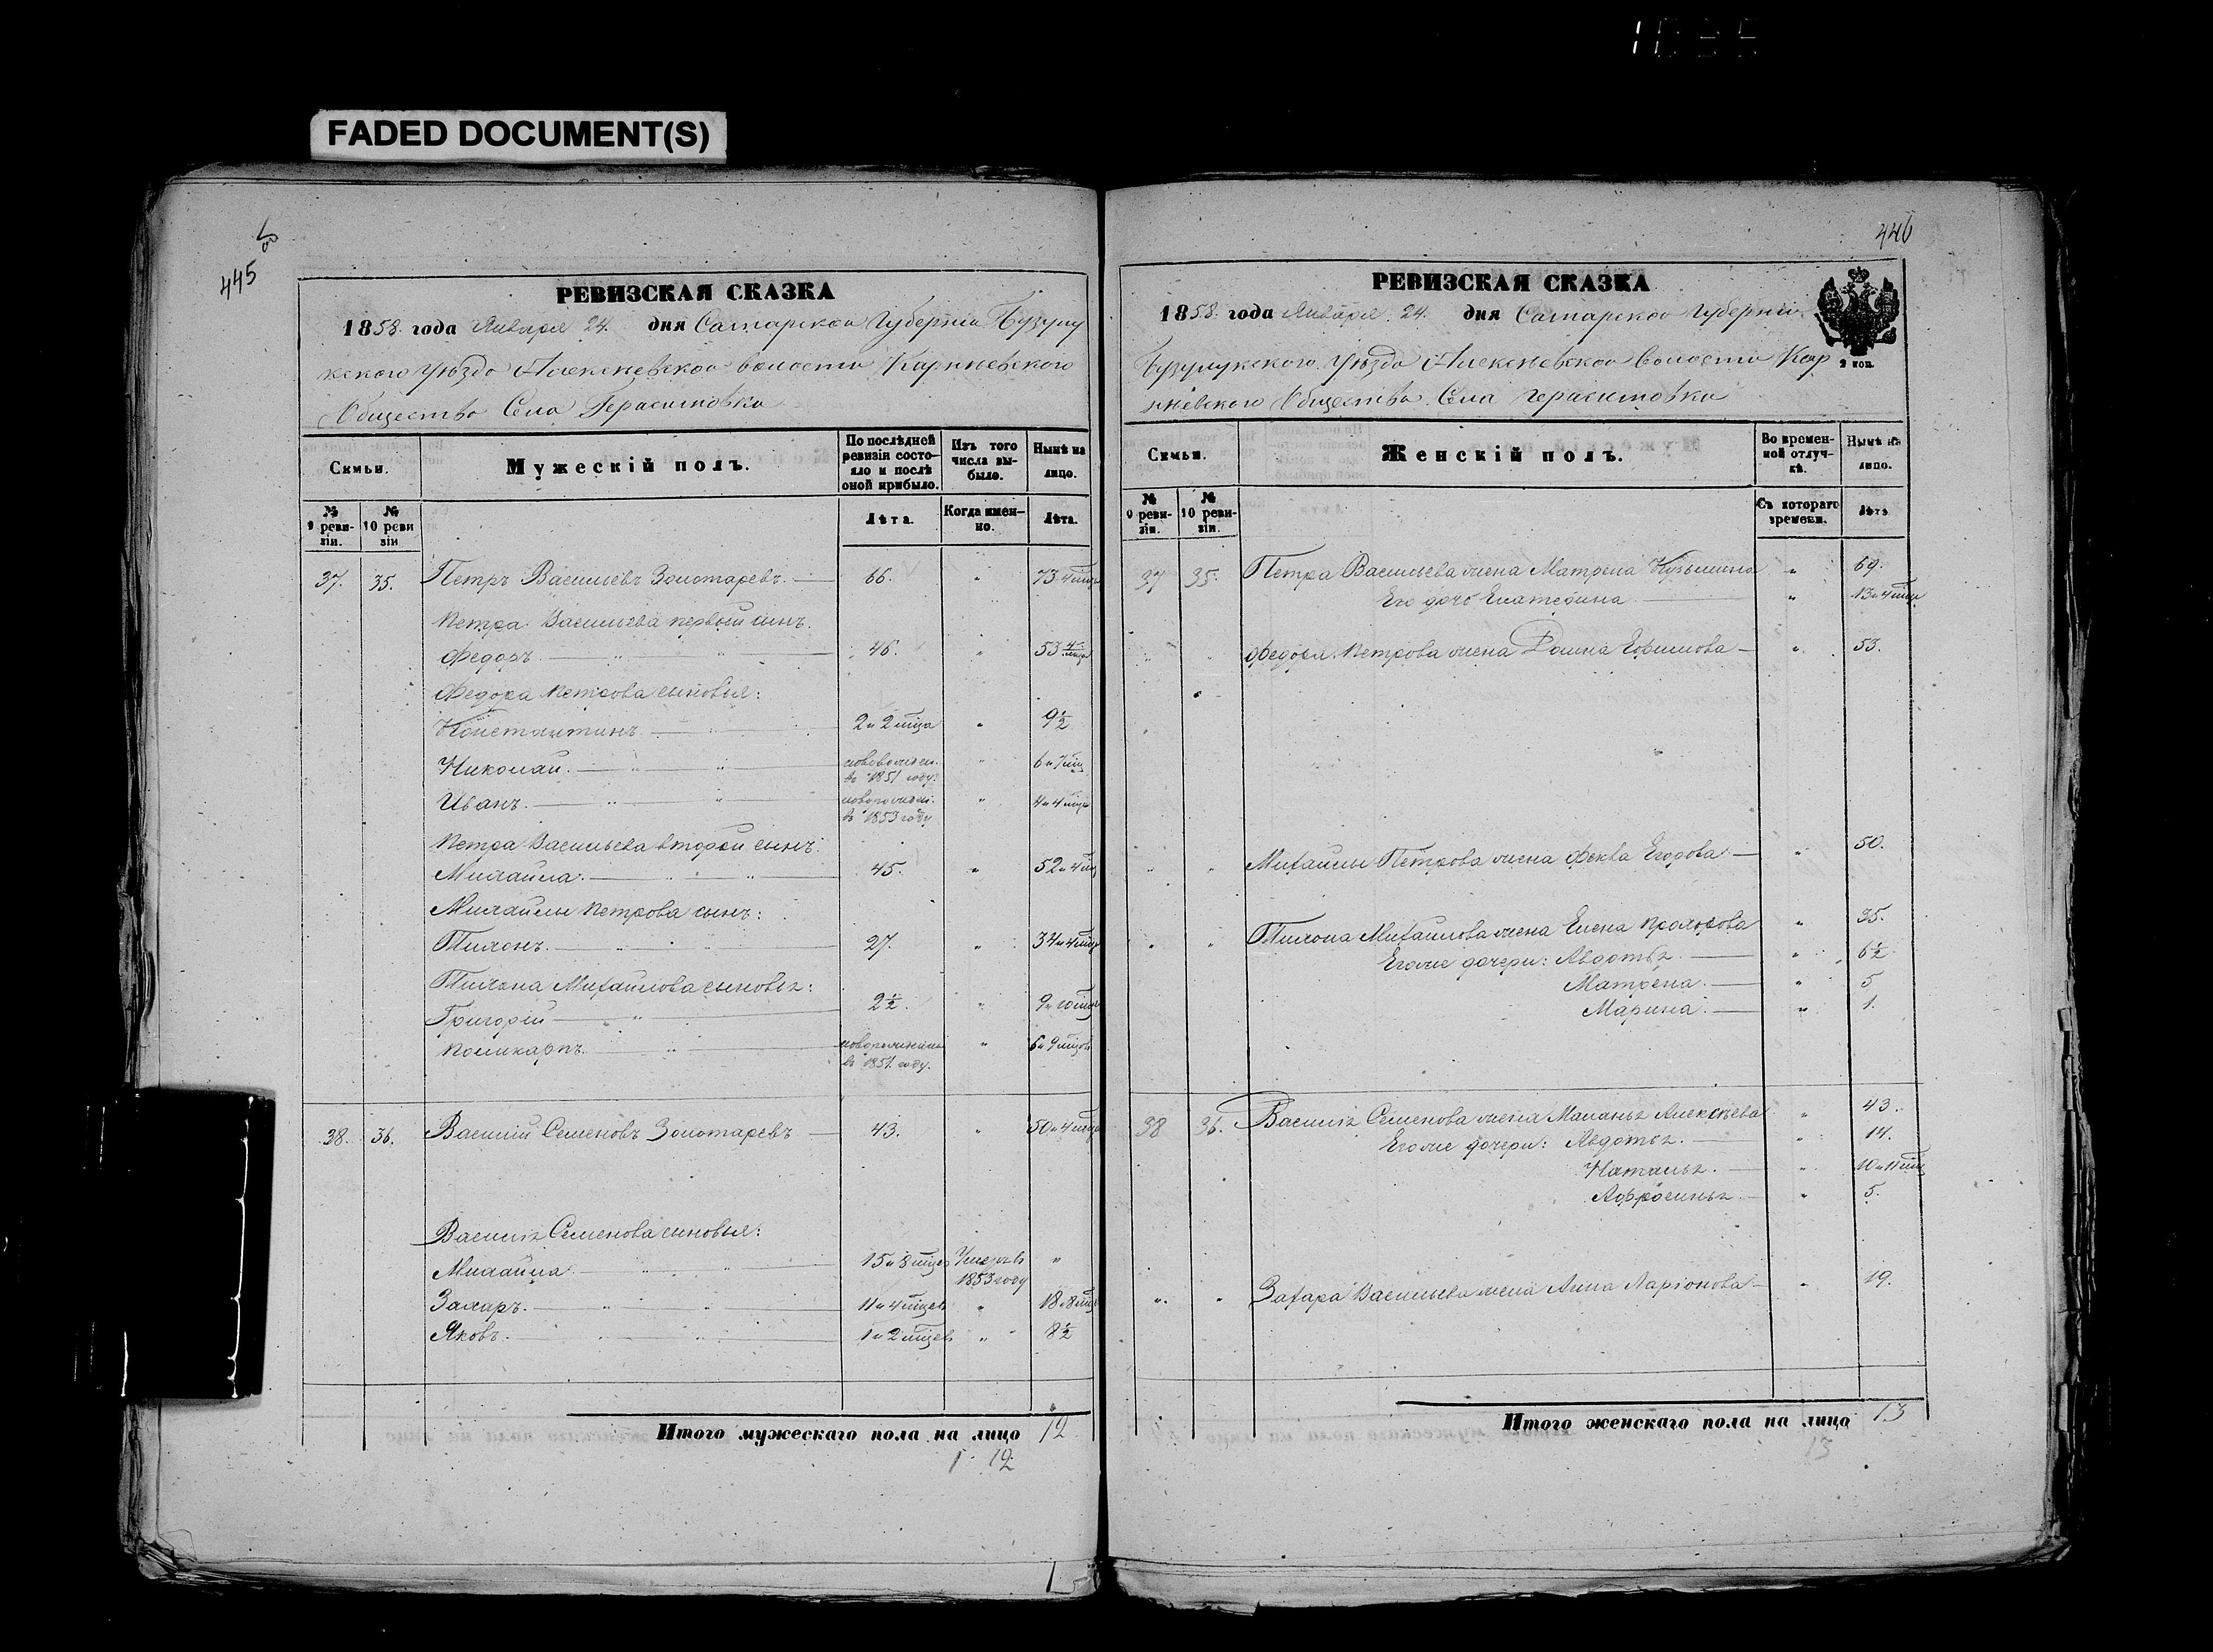 FADED DOCUMENT(S)
445
РЕВИЗСКАЯ СКАЗКА
1858 года Января 24. дня Самарской Губерніи Бузулу
кскаго Уѣзда Алексѣевской волости Корнѣевского
Общества Села Герасимовки
Семьи.
Мужескій полъ.
По послѣдней ревизіи состояло и послѣ оной прибыло.
Изъ того числа выбыло.
Нынѣ на лицо.
№ 9 ревизіи.
№ 10 ревизіи
Лѣта.
Когда именно.
Лѣта.
37. 35. Петръ Васильевъ Золотаревъ. — 66. " 73 4 мѣца
Петра Васильева первый сынъ.
Федоръ. — " — " — 46. " 53 4 мѣца
Федора Петрова сыновья:
Константинъ — " — 2 и 2 мѣца " 9½
Николай. — " — " — новорожден. въ 1851 году. " 6 и 7 мѣц
Иванъ. — " — " — новорожден. въ 1853 году " 4 и 4 мѣца
Петра Васильева второй сынъ:
Михайла. — " — " — 45. " 52 и 4 мѣц
Михайлы Петрова сынъ:
Тихонъ. — " — " — 27. " 34 и 4 мѣца
Тихона Михайлова сыновья:
Григорій — " — 2½. " 9 и 10 мѣцъ
Поликарпъ. — " — новорожденъ въ 1851 году. " 6 и 9 мѣцовъ
38. 36. Василій Семеновъ Золотаревъ — 43. " 50 и 4 мѣца
Василія Семенова сыновья:
Михайла — " — " — 15 и 8 мѣцев Умеръ въ 1853 году "
Захаръ. — " — " — 11 и 4 мѣцев " 18 и 8 мѣц
Яковъ. — " — " — 1 и 2 мѣцев " 8½
Итого мужескаго пола на лицо 12
1 12
446
РЕВИЗСКАЯ СКАЗКА
1858 года Января 24. дня Самарской Губерніи
Бузулукского Уѣзда Алексѣевской волости Кор
нѣевского Общества Села Герасимовки
2 коп.
Семьи.
Женскій полъ.
Во временной отлучкѣ.
Нынѣ на лицо.
№ 9 ревизіи.
№ 10 ревизіи.
Съ котораго времени.
Лѣта
37 35. Петра Васильева жена Матрена Кузьмина " 69.
Его дочь Екатерина — " 13 и 4 мѣца
" " Федора Петрова жена Домна Ефимова — " 53.
" " Михайлы Петрова жена Фекла Егорова — " 50.
" " Тихона Михайлова жена Елена Прохорова " 35.
Его же дочери: Авдотья. — " 6½
Матрена. — " 5
Марина. — " 1.
38 36. Василія Семенова жена Маланья Алексѣева " 43.
Его же дочери: Авдотья. — " 14.
Наталья. — " 10 и 11 мѣц
Афросинья — " 5.
" " Захара Васильева жена Анна Ларіонова — " 19.
Итого женскаго пола на лицо 13
13